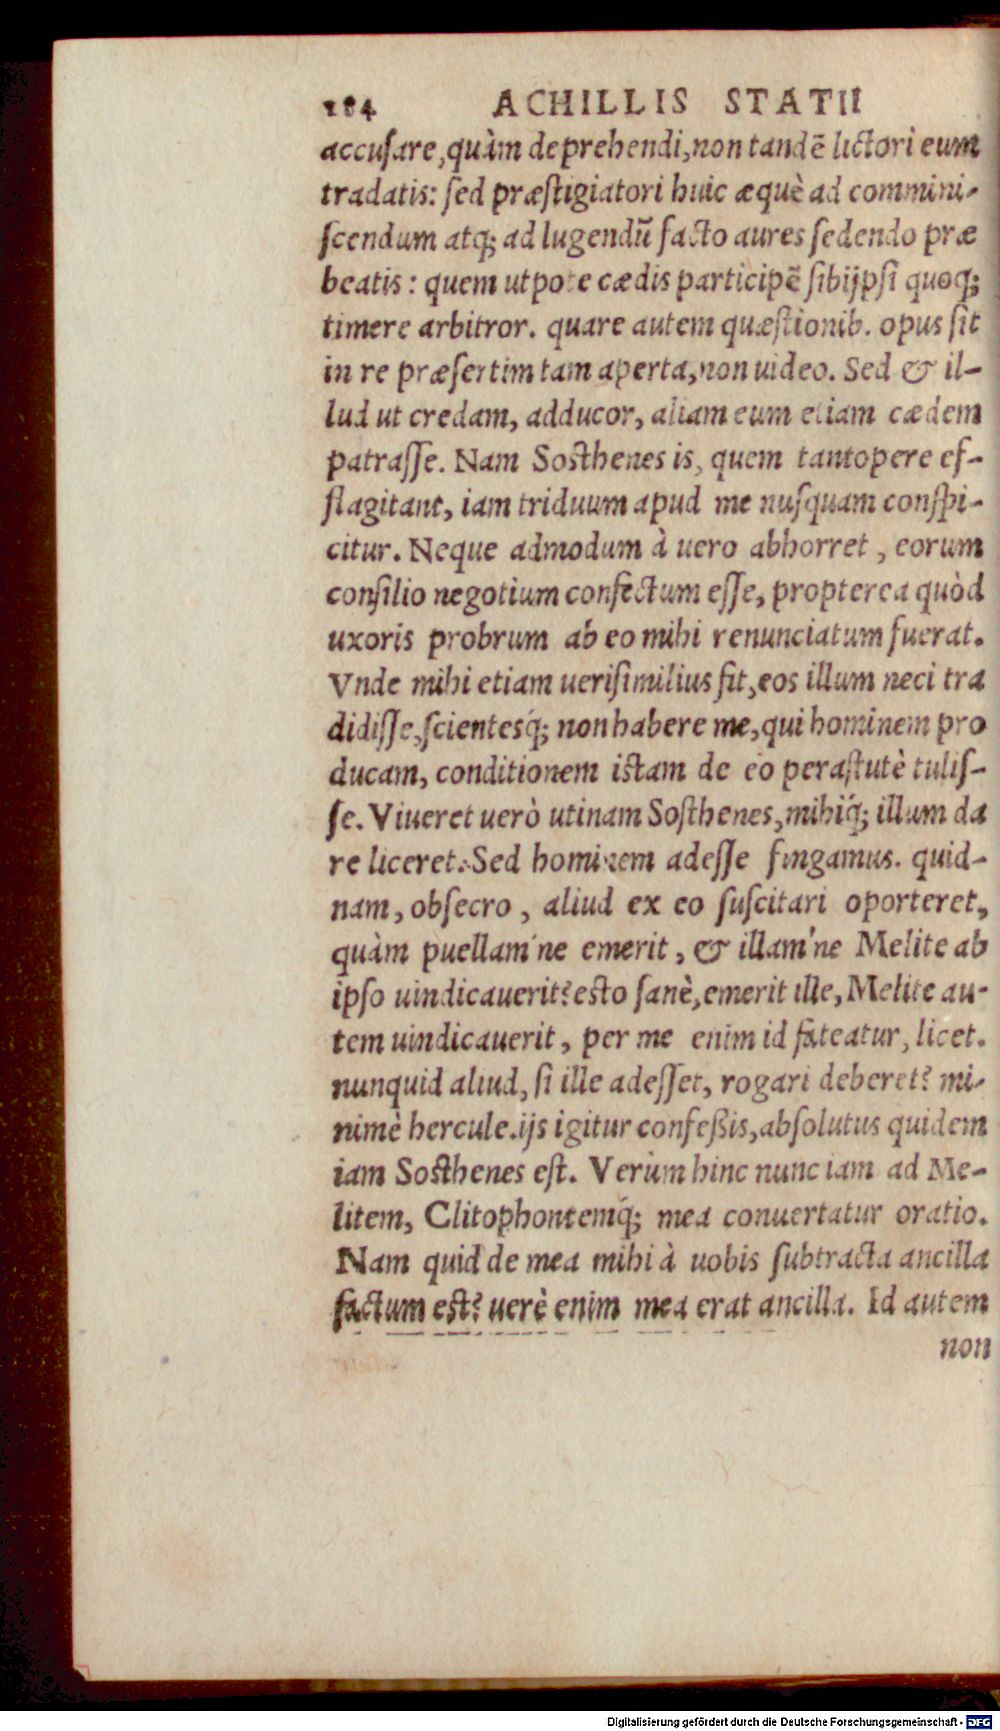 184 ACHILLIS STATII
accusare, quàm deprehendi, non tandē lictori eum
tradatis: sed præstigiatori huic æquè ad commini-
scendum atq; ad lugendū facto aures sedendo præ
beatis: quem utpote cædis participē sibijpsi quoq;
timere arbitror. quare autem quæstionib. opus sit
in re præsertim tam aperta, non uideo. Sed & il-
lud ut credam, adducor, aliam eum etiam cædem
patrasse. Nam Sosthenes is, quem tantopere ef-
flagitant, iam triduum apud me nusquam conspi-
citur. Neque admodum à uero abhorret, eorum
consilio negotium confectum esse, propterea quòd
uxoris probrum ab eo mihi renunciatum fuerat.
Vnde mihi etiam uerisimilius fit, eos illum neci tra
didisse, scientesq́; non habere me, qui hominem pro
ducam, conditionem istam de eo perastutè tulis-
se. Viueret uerò utinam Sosthenes, mihiq́; illum da
re liceret. Sed hominem adesse fingamus. quid-
nam, obsecro, aliud ex eo suscitari oporteret,
quàm puellam'ne emerit, & illam'ne Melite ab
ipso uindicauerit? esto sanè, emerit ille, Melite au-
tem uindicauerit, per me enim id fateatur, licet.
nunquid aliud, si ille adesset, rogari deberet? mi-
nimè hercule. ijs igitur confeßis, absolutus quidem
iam Sosthenes est. Verùm hinc nunc iam ad Me-
litem, Clitophontemq́; mea conuertatur oratio.
Nam quid de mea mihi à uobis subtracta ancilla
factum est? uerè enim mea erat ancilla. Id autem
non
Digitalisierung gefördert durch die Deutsche Forschungsgemeinschaft - DFG